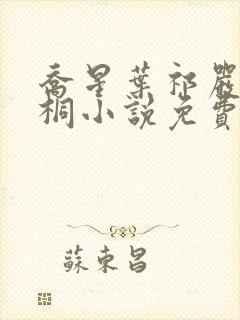 喬星葉祁嚴
桐小說免費
蘇東昌